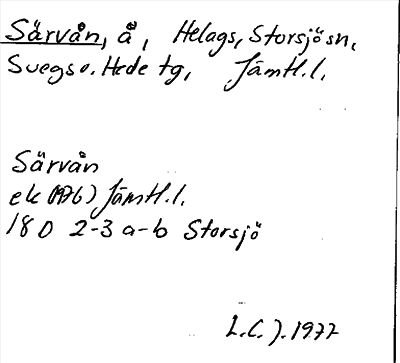 Särvån, å, Helags, Storsjö sn,
Svegs o. Hede tg, Jämtl.l.
Särvån
ek (1976) Jämtl.l.
18 D 2-3 a-b Storsjö
L.C.J. 1977